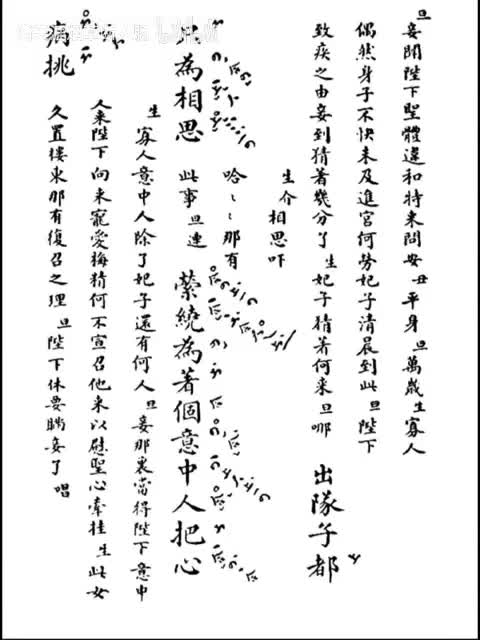 旦妾聞陛下聖體違和特来問安丑平身旦萬歲生寡人
偶然身子不快未及進宫何勞妃子清晨到此旦陛下
致疾之由妾到猜著幾分了生妃子猜著何来旦哪 出隊子都
生介相思吓
只為相思 哈哈那有
此事旦連 縈繞為著個意中人把心
生寡人意中人除了妃子還有何人旦妾那裏當得陛下意中
人来陛下向来寵愛梅精何不宣召他来以慰聖心牽挂生此女
病挑 久置樓東那有復召之理旦陛下休要瞞妾了唱